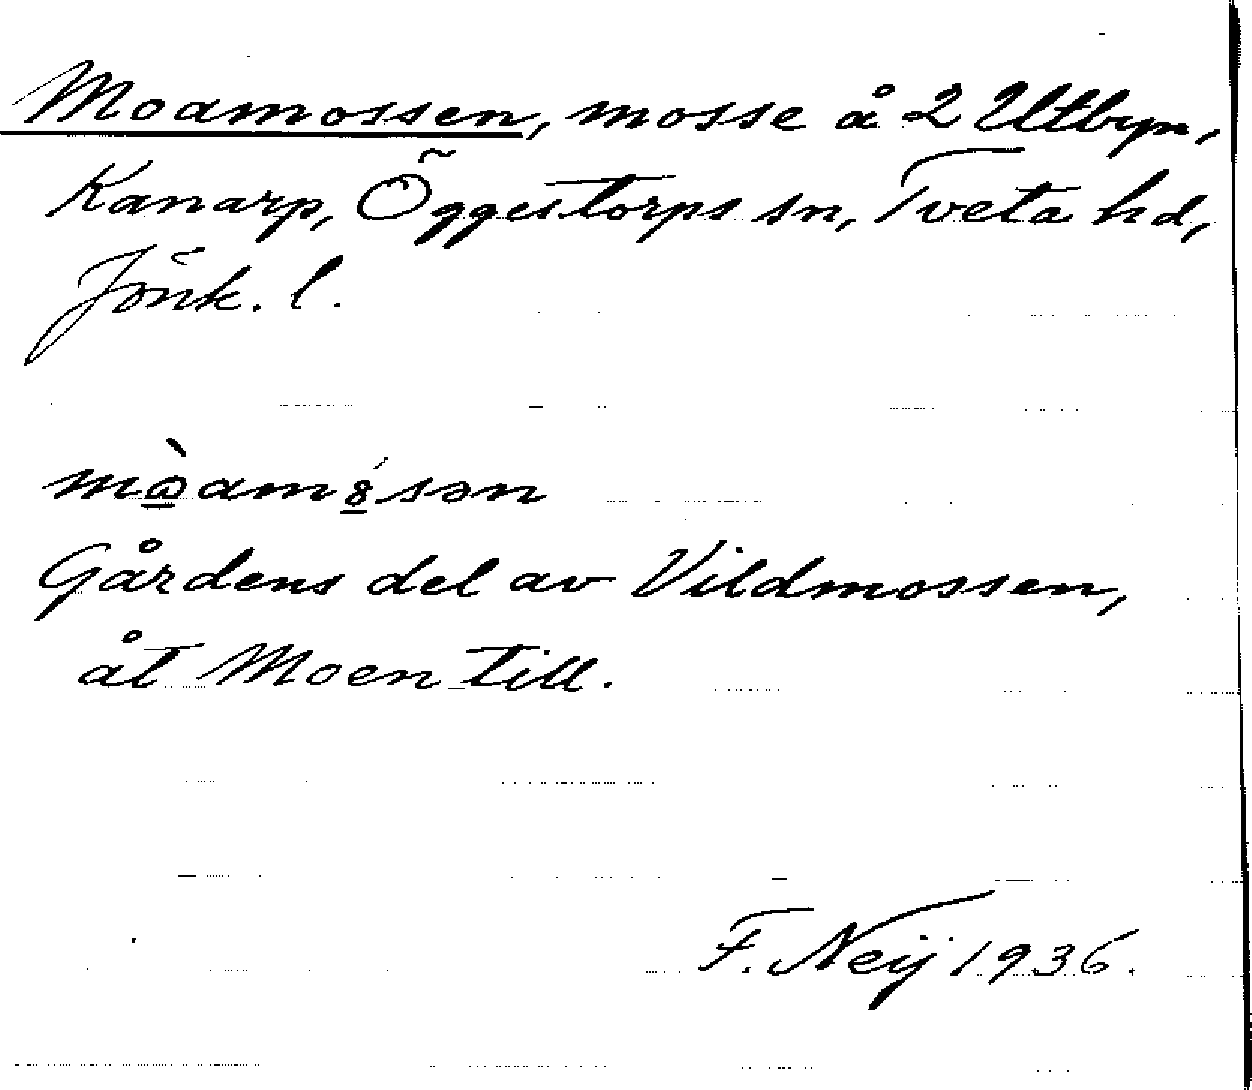 Moamossen, mosse å 2 Utbyn,
Kanarp, Öggestorps sn, Tveta hd,
Jönk. l.
Gårdens del av Vildmossen,
åt Moen till.
F. Neij 1936.